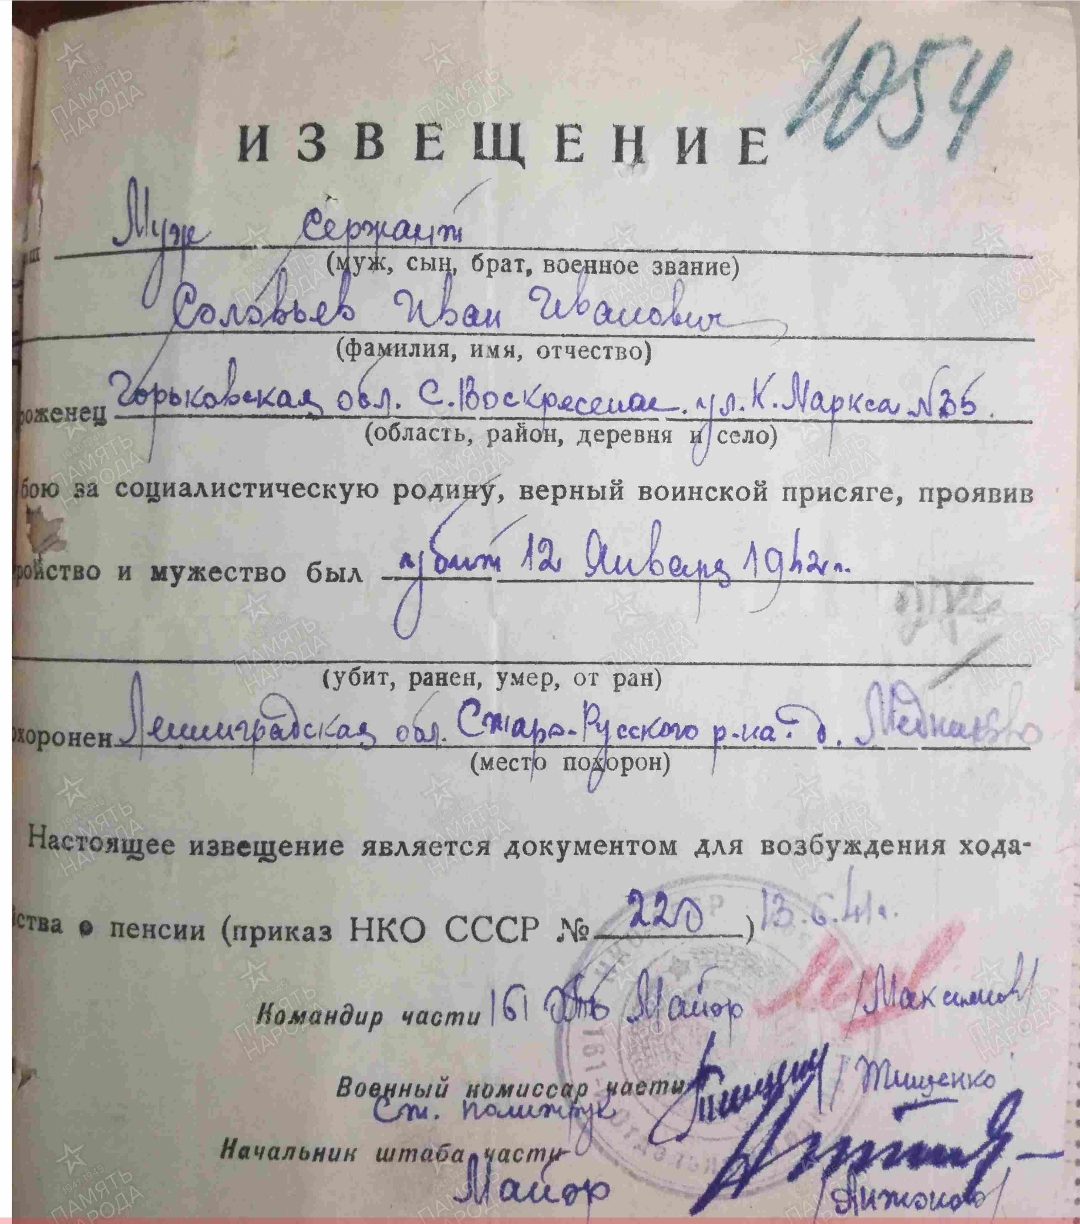 1054
ИЗВЕЩЕНИЕ
Муж сержант
(муж, сын, брат, военное звание)
Соловьев Иван Иванович
(фамилия, имя, отчество)
роженец Горьковская обл. С. Воскресенс. ул. К. Маркса №35.
(область, район, деревня и село)
бою за социалистическую родину, верный воинской присяге, проявив
ройство и мужество был убит 12 Января 1942 г.
(убит, ранен, умер, от ран)
охоронен Ленинградская обл. Старо-Русского р-на. д. Медниково
(место похорон)
Настоящее извещение является документом для возбуждения хода-
ства о пенсии (приказ НКО СССР № 220) 13.6.41 г.
Командир части 161 Майор /Максимов/
Военный комиссар части /Тищенко
Ст. политрук
Начальник штаба части
Майор /Антонов/
ПАМЯТЬ НАРОДА